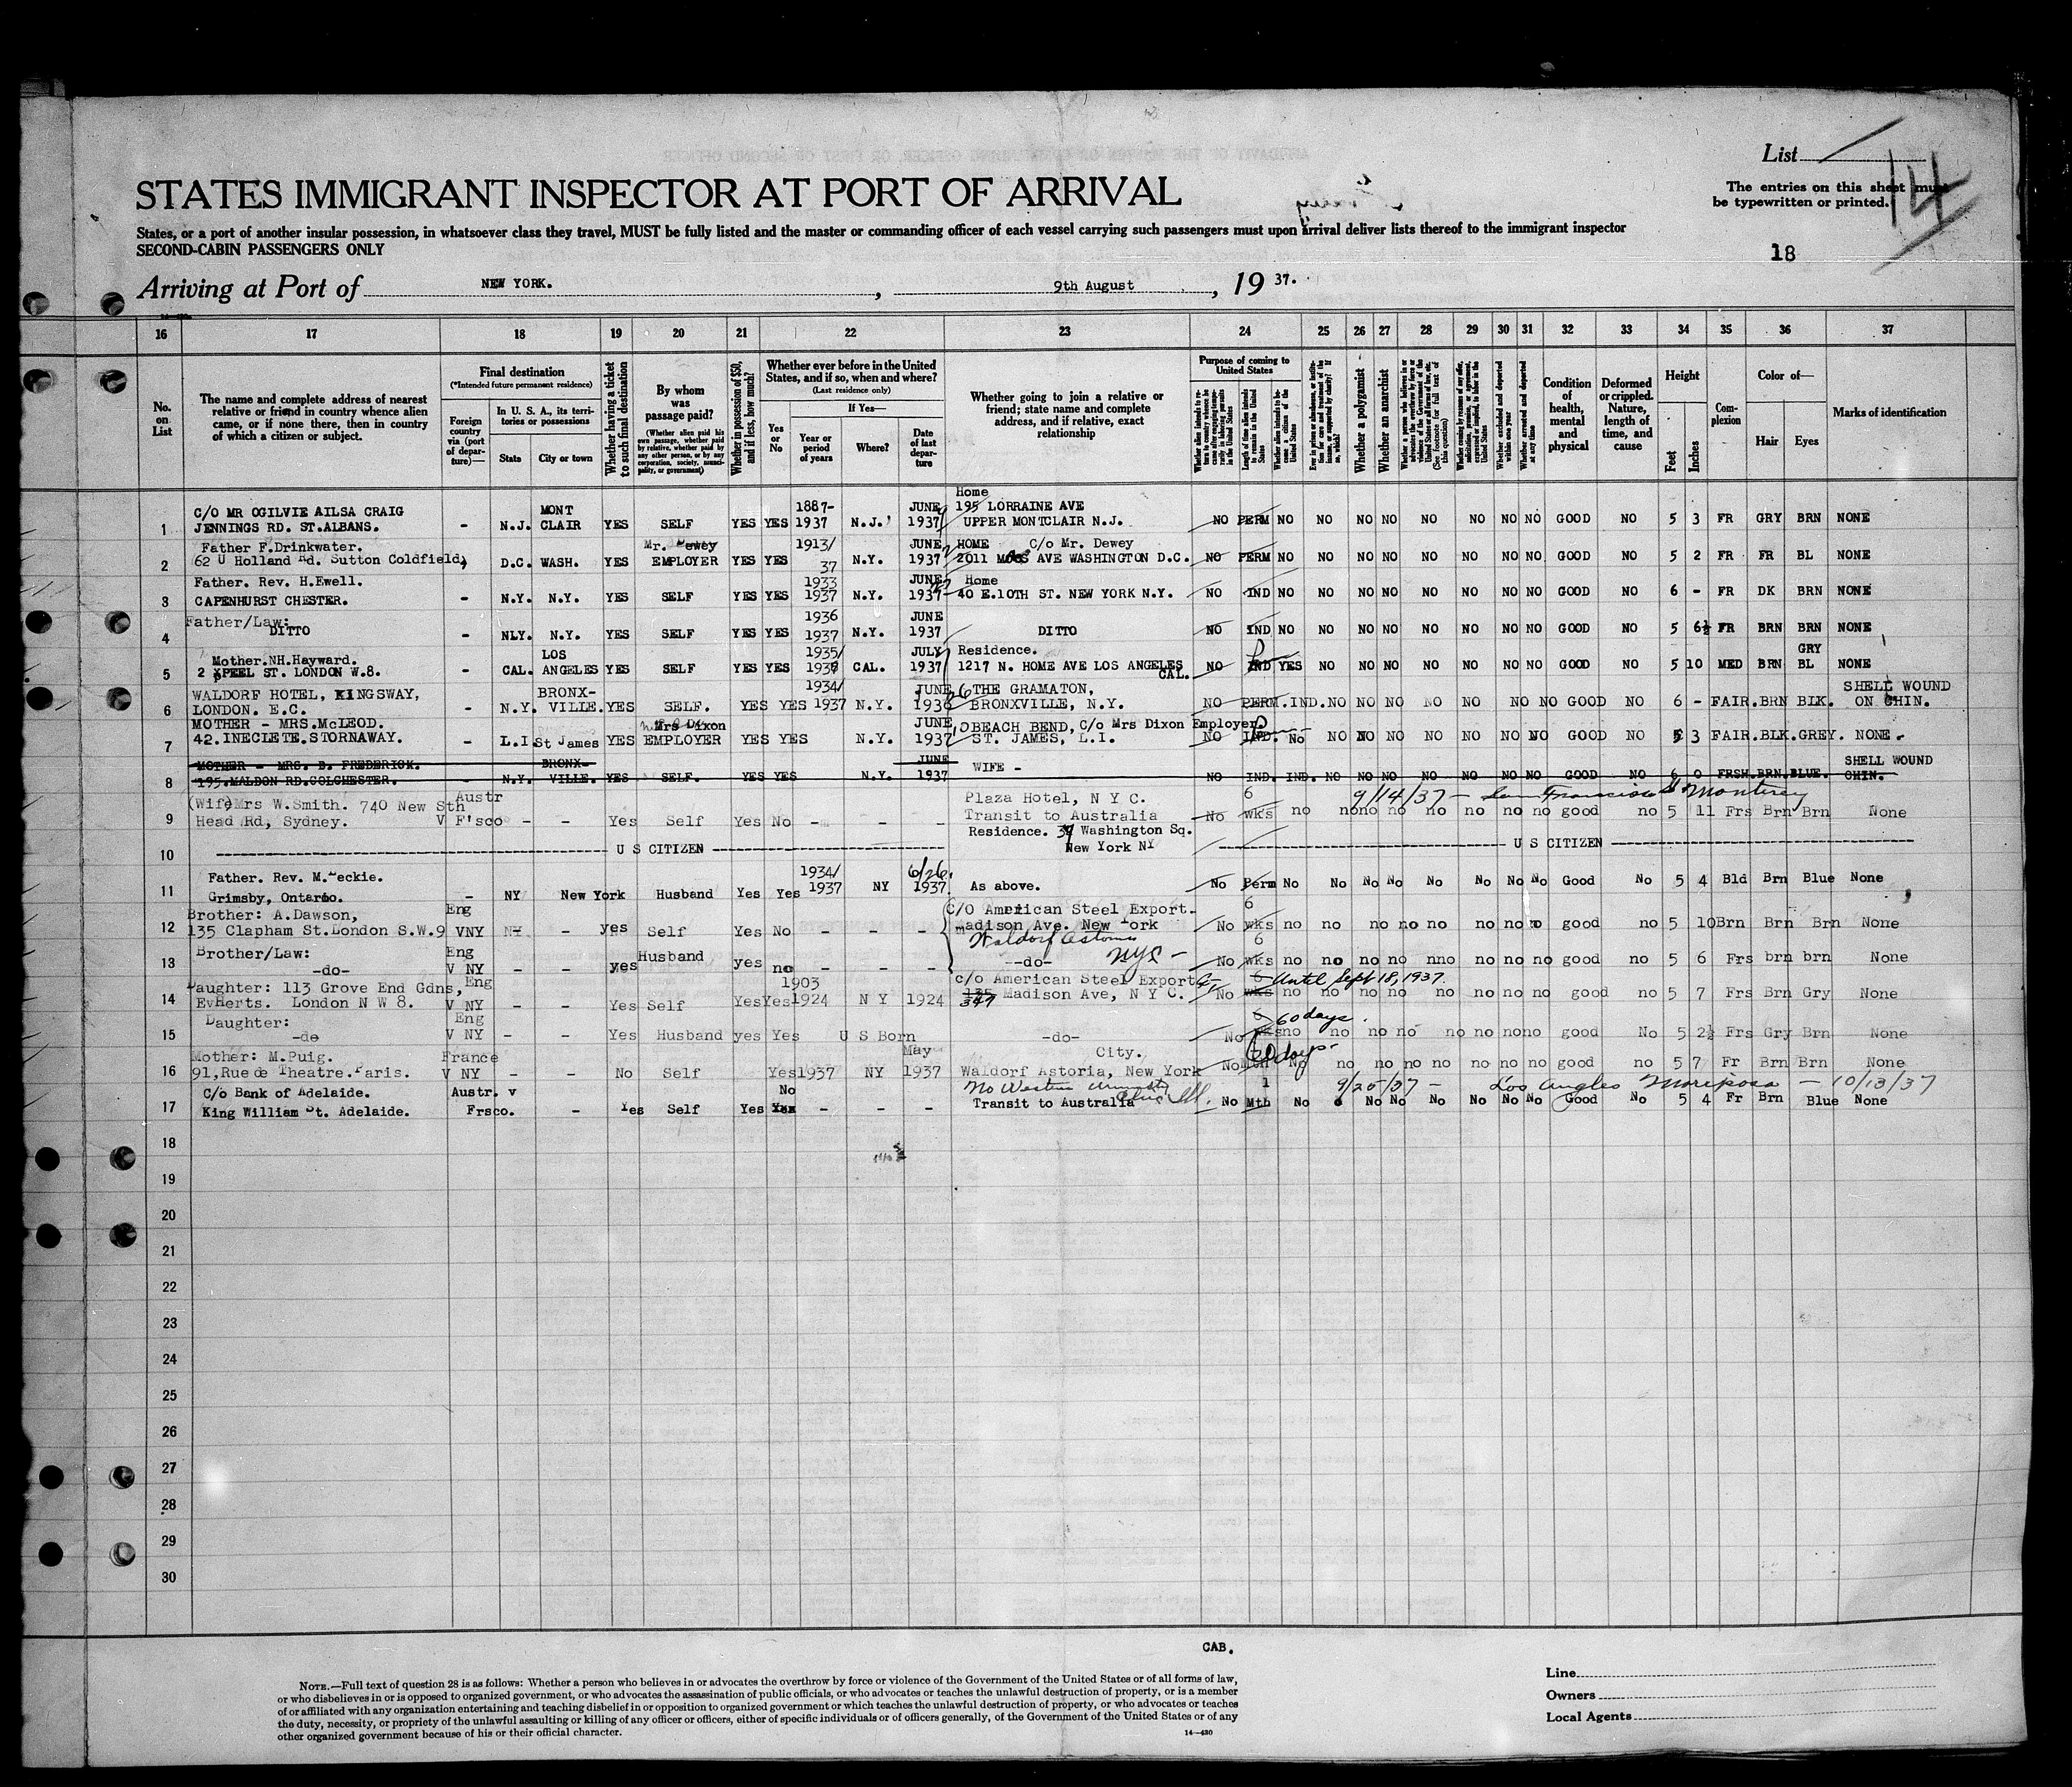 List
14
The entries on this sheet must
be typewritten or printed.
STATES IMMIGRANT INSPECTOR AT PORT OF ARRIVAL
States, or a port of another insular possession, in whatsoever class they travel, MUST be fully listed and the master or commanding officer of each vessel carrying such passengers must upon arrival deliver lists thereof to the immigrant inspector
SECOND-CABIN PASSENGERS ONLY
18
Arriving at Port of NEW YORK. , 9th August , 19 37.
16 17 18 19 20 21 22 23 24 25 26 27 28 29 30 31 32 33 34 35 36 37
No. on List
The name and complete address of nearest relative or friend in country whence alien came, or if none there, then in country of which a citizen or subject.
Final destination
(*Intended future permanent residence)
Foreign country via (port of departure)—
In U. S. A., its territories or possessions
State
City or town
Whether having a ticket to such final destination
By whom was passage paid?
(Whether alien paid his own passage, whether paid by relative, whether paid by any other person, or by any corporation, society, municipality, or government)
Whether in possession of $50, and if less, how much?
Whether ever before in the United States, and if so, when and where?
(Last residence only)
Yes or No
If Yes—
Year or period of years
Where?
Date of last departure
Whether going to join a relative or friend; state name and complete address, and if relative, exact relationship
Purpose of coming to United States
Length of time alien intends to remain in the United States
Whether alien intends to become a citizen of the United States
Whether a polygamist
Whether an anarchist
(See footnote for full text of this question)
Whether excluded and deported within one year
Whether arrested and deported at any time
Condition of health, mental and physical
Deformed or crippled. Nature, length of time, and cause
Height
Feet
Inches
Complexion
Color of—
Hair
Eyes
Marks of identification
C/O MR OGILVIE AILSA CRAIG MONT 1887- JUNE Home 195 LORRAINE AVE
1 JENNINGS RD. ST.ALBANS. - N.J. CLAIR YES SELF YES YES 1937 N.J. 1937 UPPER MONTCLAIR N.J. NO PERM NO NO NO NO NO NO NO NO GOOD NO 5 3 FR GRY BRN NONE
Father F.Drinkwater. Mr. Dewey 1913/ JUNE HOME C/o Mr. Dewey
2 62 U Holland Rd. Sutton Coldfield. D.C. WASH. YES EMPLOYER YES YES 37 N.Y. 1937 2011 AVE WASHINGTON D.C. NO PERM NO NO NO NO NO NO NO NO GOOD NO 5 2 FR FR BL NONE
Father. Rev. H.Ewell. 1933 JUNE Home
3 CAPENHURST CHESTER. - N.Y. N.Y. YES SELF YES YES 1937 N.Y. 1937 40 E.10TH ST. NEW YORK N.Y. NO IND NO NO NO NO NO NO NO NO GOOD NO 6 - FR DK BRN NONE
Father/Law: 1936 JUNE
4 DITTO - NLY. N.Y. YES SELF YES YES 1937 N.Y. 1937 DITTO NO IND NO NO NO NO NO NO NO NO GOOD NO 5 6½ FR BRN BRN NONE
Mother.NH.Hayward. LOS 1935/ JULY Residence. P GRY
5 2 PEEL ST. LONDON W.8. - CAL. ANGELES YES SELF YES YES 1937 CAL. 1937 1217 N. HOME AVE LOS ANGELES CAL. NO IND YES NO NO NO NO NO NO NO GOOD NO 5 10 MED BRN BL NONE
WALDORF HOTEL, KINGSWAY, BRONX- 1934/ JUNE THE GRAMATON, SHELL WOUND
6 LONDON. E.C. - N.Y. VILLE. YES SELF. YES YES 1937 N.Y. 1936 BRONXVILLE, N.Y. NO PERM. IND. NO NO NO NO NO NO NO GOOD NO 6 - FAIR. BRN BLK. ON CHIN.
MOTHER - MRS.McLEOD. Mrs Dixon JUNE BEACH BEND, C/o Mrs Dixon Employer
7 42.INECLETE.STORNAWAY. - L.I. St James YES EMPLOYER YES YES N.Y. 1937 ST. JAMES, L.I. NO IND. No NO NO NO NO NO NO NO GOOD NO 5 3 FAIR. BLK. GREY. NONE.
MOTHER - MRS. B. FREDERICK. BRONX- JUNE WIFE - SHELL WOUND
8 195.MALDON RD.COLCHESTER. N.Y. VILLE. YES SELF. YES YES N.Y. 1937 NO IND. IND. NO NO NO NO NO NO NO GOOD NO 6 0 FRSH. BRN. BLUE. CHIN.
(Wife)Mrs W.Smith. 740 New Sth Austr Plaza Hotel, N Y C. 6 9/14/37 - San Francisco SS Monterey
9 Head Rd, Sydney. V F'sco - - Yes Self Yes No - - - Transit to Australia No wks no no no no no no no no good no 5 11 Frs Brn Brn None
Residence. 39 Washington Sq.
10 U S CITIZEN New York NY U S CITIZEN
Father. Rev. M. 1934/ 6/26
11 Grimsby, Ontario. - NY New York Husband Yes Yes 1937 NY 1937 As above. No Perm No No No No No No No No Good No 5 4 Bld Brn Blue None
Brother: A.Dawson, Eng C/O American Steel Export. 6
12 135 Clapham St.London S.W.9 VNY - yes Self Yes No - - - madison Ave. New York No wks no no no no no no no no good no 5 10 Brn Brn Brn None
Waldorf Astoria NYC -
Brother/Law: Eng Husband 6
13 -do- V NY - - yes yes no - - - --do- No wks no no no no nno no no no good no 5 6 Frs brn brn None
Daughter: 113 Grove End Gdns, Eng 1903 c/o American Steel Export Co, 6 Until Sept 18, 1937.
14 Everts. London N W 8. V NY - - Yes Self Yes Yes 1924 N Y 1924 347 Madison Ave, N Y C. No wks no no no no no no no no good no 5 7 Frs Brn Gry None
Daughter: Eng 6 60 days.
15 -do V NY - - Yes Husband yes Yes U S Born -do- No wks no no no no no no no no good No 5 2½ Frs Gry Brn None
Mother: M.Puig. France May City. 60 days-
16 91,Rue de Theatre.Paris. V NY - - No Self Yes 1937 NY 1937 Waldorf Astoria, New York No Mth No no no no no no no no good no 5 7 Fr Brn Brn None
C/o Bank of Adelaide. Austr. v No 1 9/25/37 - Los Angles Mariposa - 10/13/37
17 King William St. Adelaide. Frsco. - Yes Self Yes - - - Transit to Australia No Mth No No No No No No No Good No 5 4 Fr Brn Blue None
18
19
20
21
22
23
24
25
26
27
28
29
30
CAB.
NOTE.—Full text of question 28 is as follows: Whether a person who believes in or advocates the overthrow by force or violence of the Government of the United States or of all forms of law,
or who disbelieves in or is opposed to organized government, or who advocates the assassination of public officials, or who advocates or teaches the unlawful destruction of property, or is a member
of or affiliated with any organization entertaining and teaching disbelief in or opposition to organized government or which teaches the unlawful destruction of property, or who advocates or teaches
the duty, necessity, or propriety of the unlawful assaulting or killing of any officer or officers, either of specific individuals or of officers generally, of the Government of the United States or of any
other organized government because of his or their official character.
14—430
Line
Owners
Local Agents